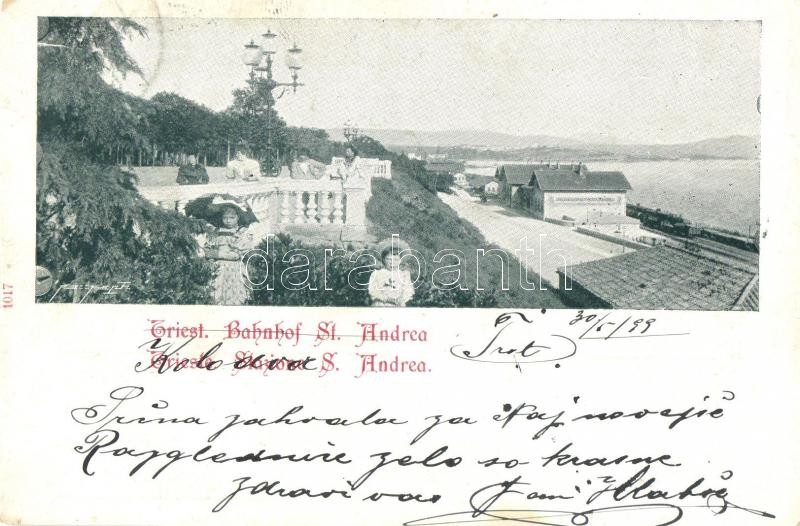 darabanth
1017
Triest. Bahnhof St. Andrea
Trieste Stazione S. Andrea.
Kolodva
Trst 30/5/99
Srčna zahvala za Naj novejše
Razglednice zelo so krasne
zdravi vas Jani